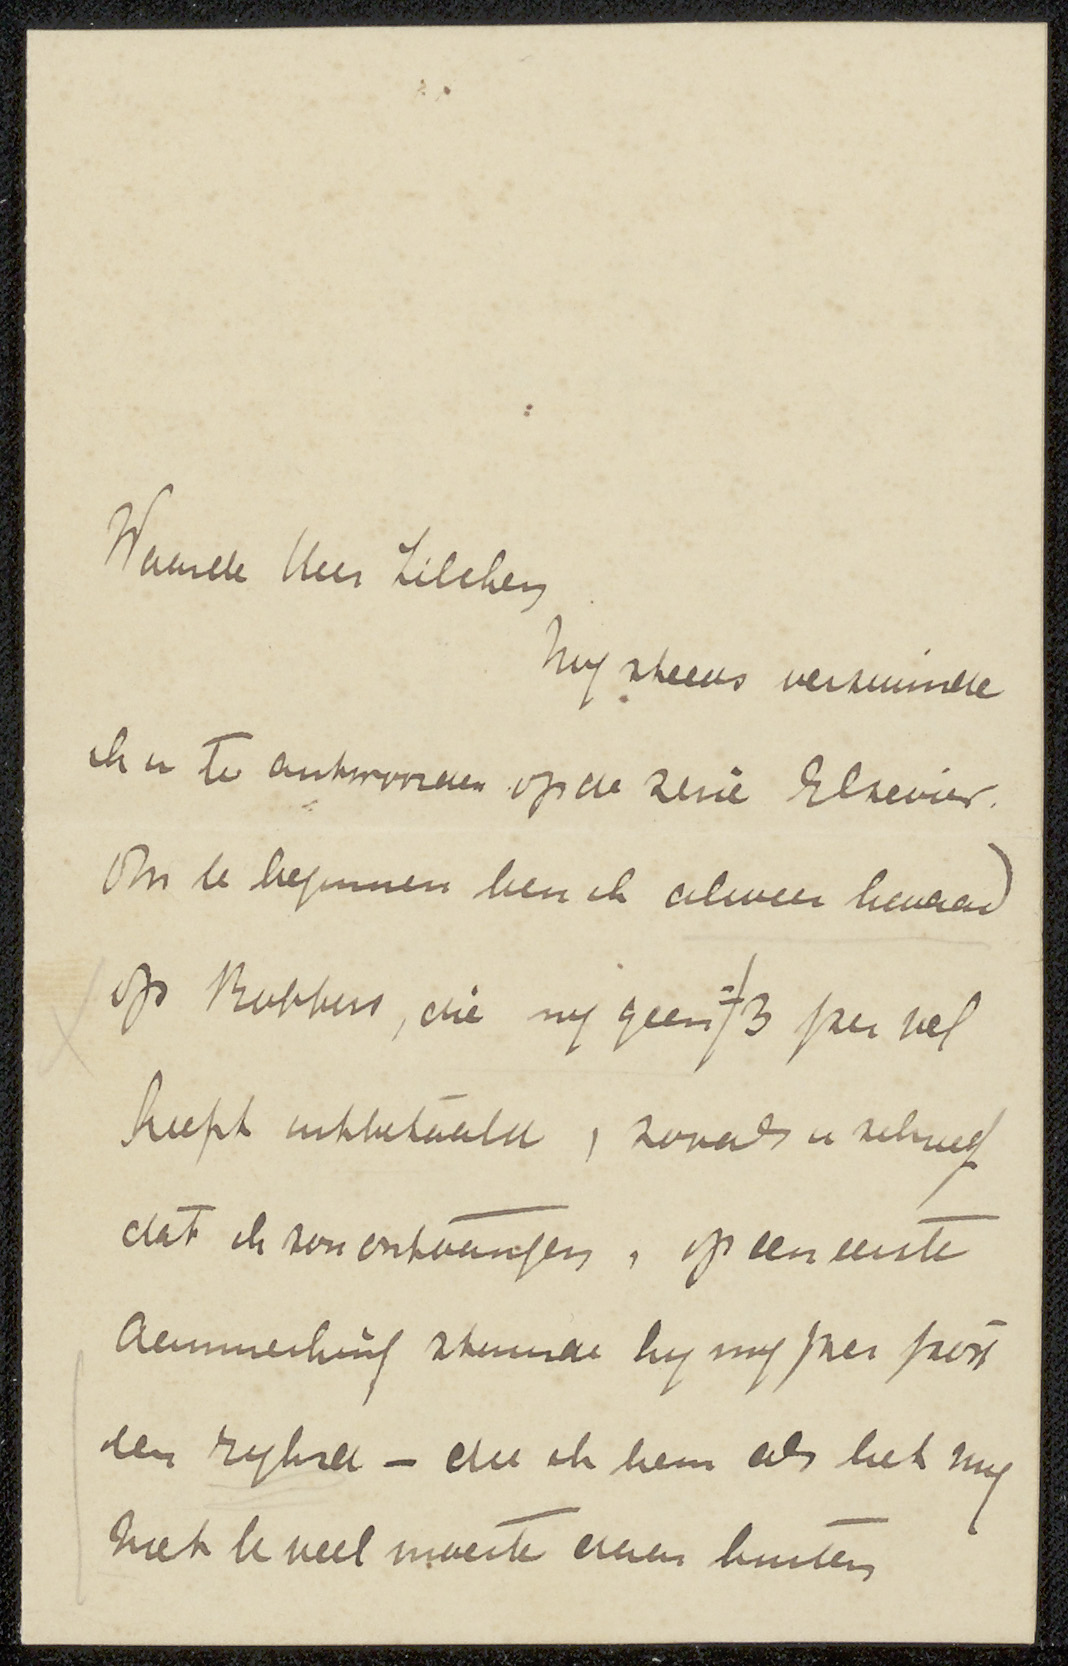 Waarde Heer Zilcken
Nog steeds verzuimde
ik u te antwoorden op de serie Elsevier.
Om te beginnen ben ik alweer kwaad
op Robbers, die my geen f3 per vel
heeft uitbetaald, zooals u schreef
dat ik zou ontvangen, op een eerste
aanmerking stuurde hy my per post
den
– die ik hem als het my
niet te veel moeite